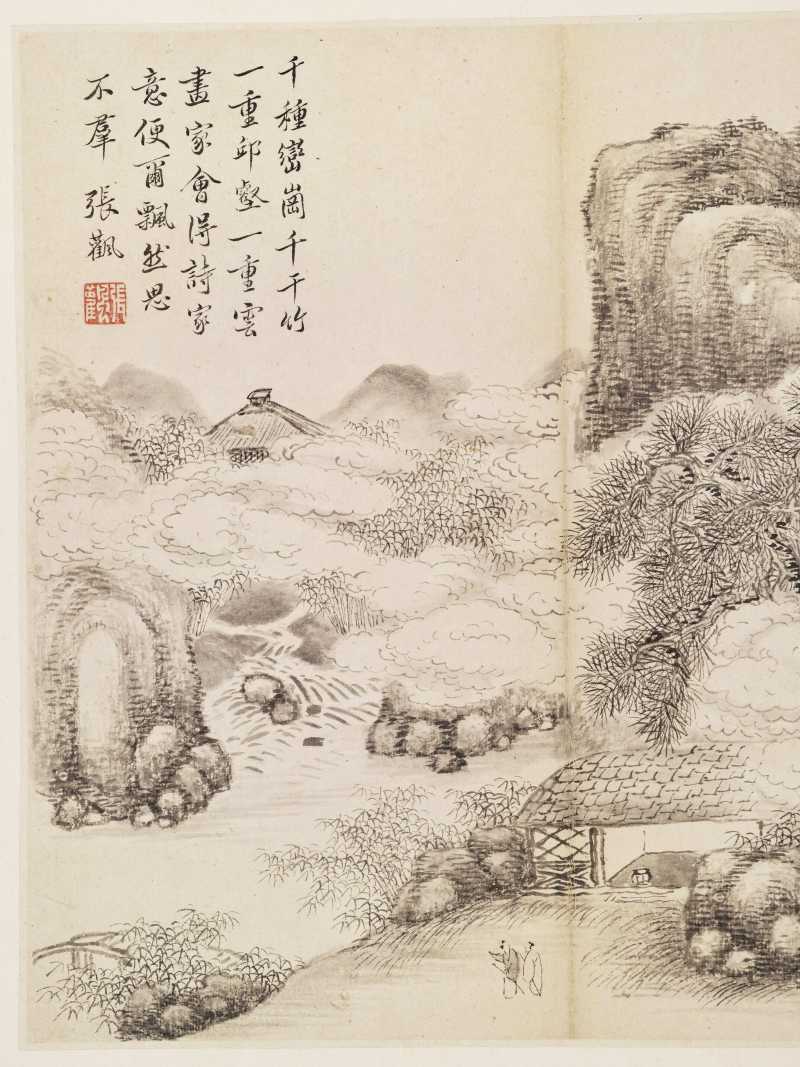 千種巒崗千干竹
一重邱壑一重雲
畫家會得詩家
意便爾飄然思
不羣 張飌